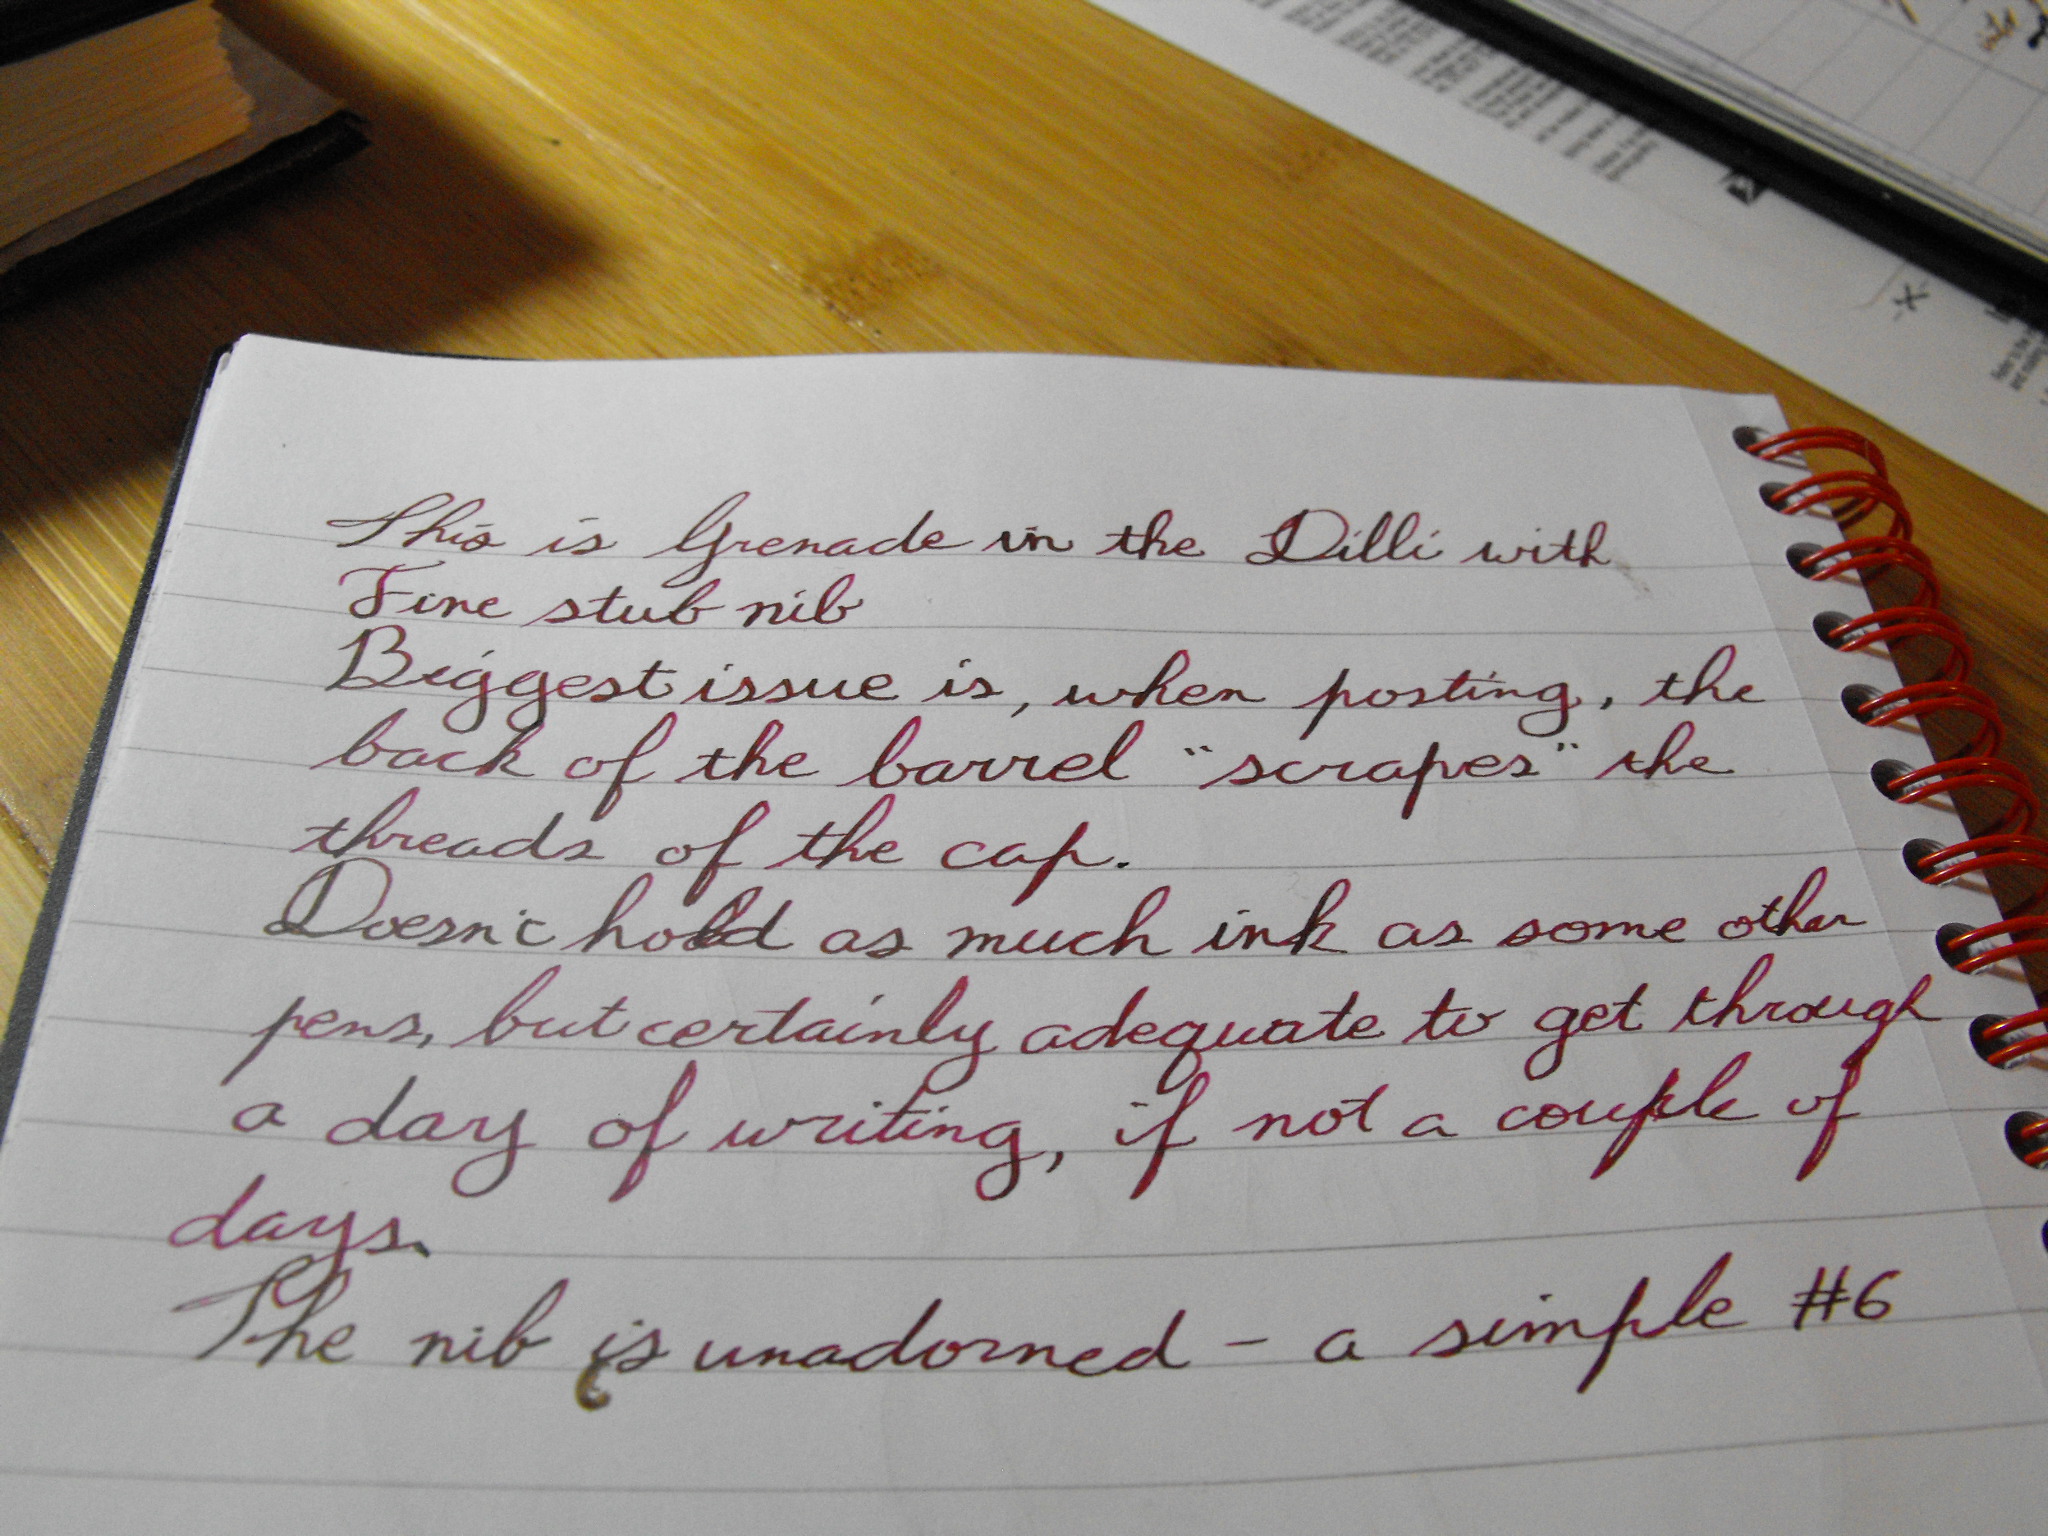 This is Grenade in the Dilli with
Fine stub nib
Biggest issue is, when posting, the
back of the barrel "scrapes" the
threads of the cap.
Doesn't hold as much ink as some other
pens, but certainly adequate to get through
a day of writing, if not a couple of
days.
The nib is unadorned - a simple #6